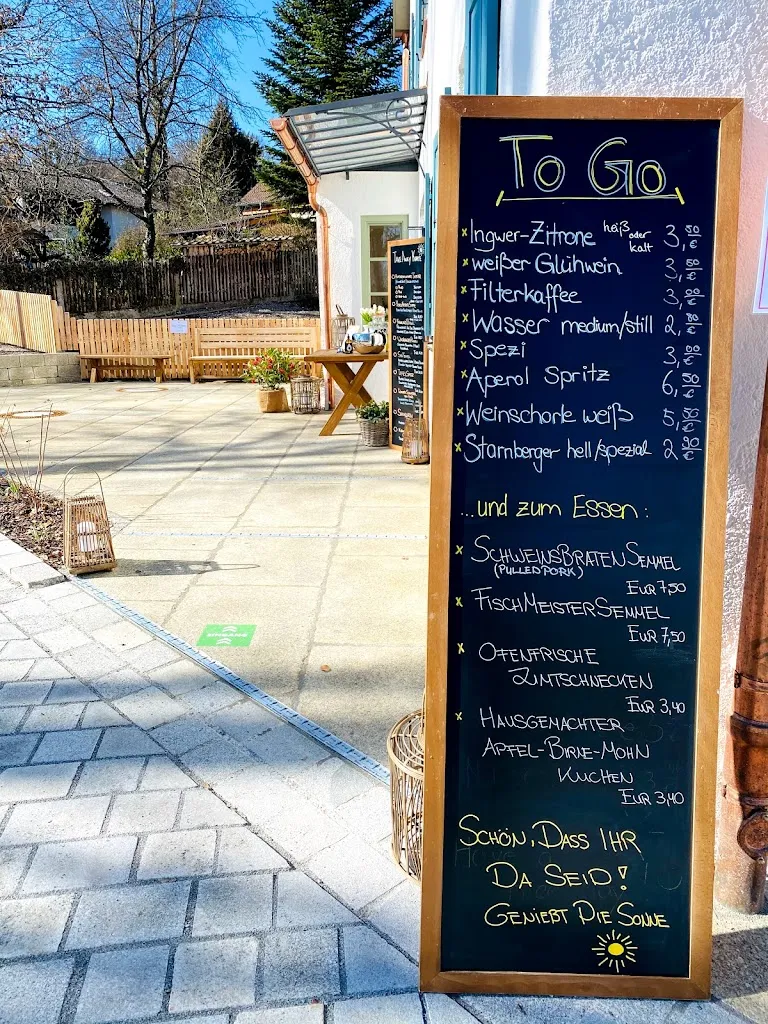 To Go
Ingwer-Zitrone heiß oder kalt 3,50 €
weißer Glühwein 3,50 €
Filterkaffee 3,00 €
Wasser medium/still 2,80 €
Spezi 3,00 €
Aperol Spritz 6,50 €
Weinschorle weiß 5,50 €
Starnberger hell/spezial 2,90 €
...und zum Essen:
SCHWEINSBRATEN SEMMEL
(PULLED PORK)
EUR 7,50
FISCHMEISTERSEMMEL
EUR 7,50
OFENFRISCHE
ZIMTSCHNECKEN
EUR 3,40
HAUSGEMACHTER
APFEL-BIRNE-MOHN
KUCHEN
EUR 3,40
SCHÖN, DASS IHR
DA SEID!
GENIEßT DIE SONNE